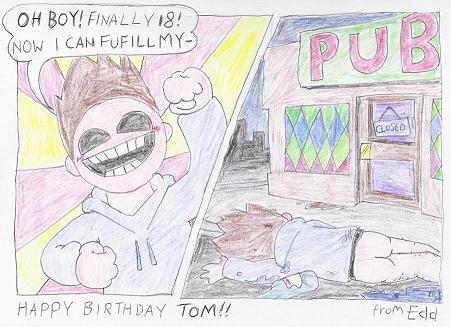 OH BOY! FINALLY 18!
NOW I CAN FUFILL MY-
PUB
CLOSED
HAPPY BIRTHDAY TOM!!
from Edd